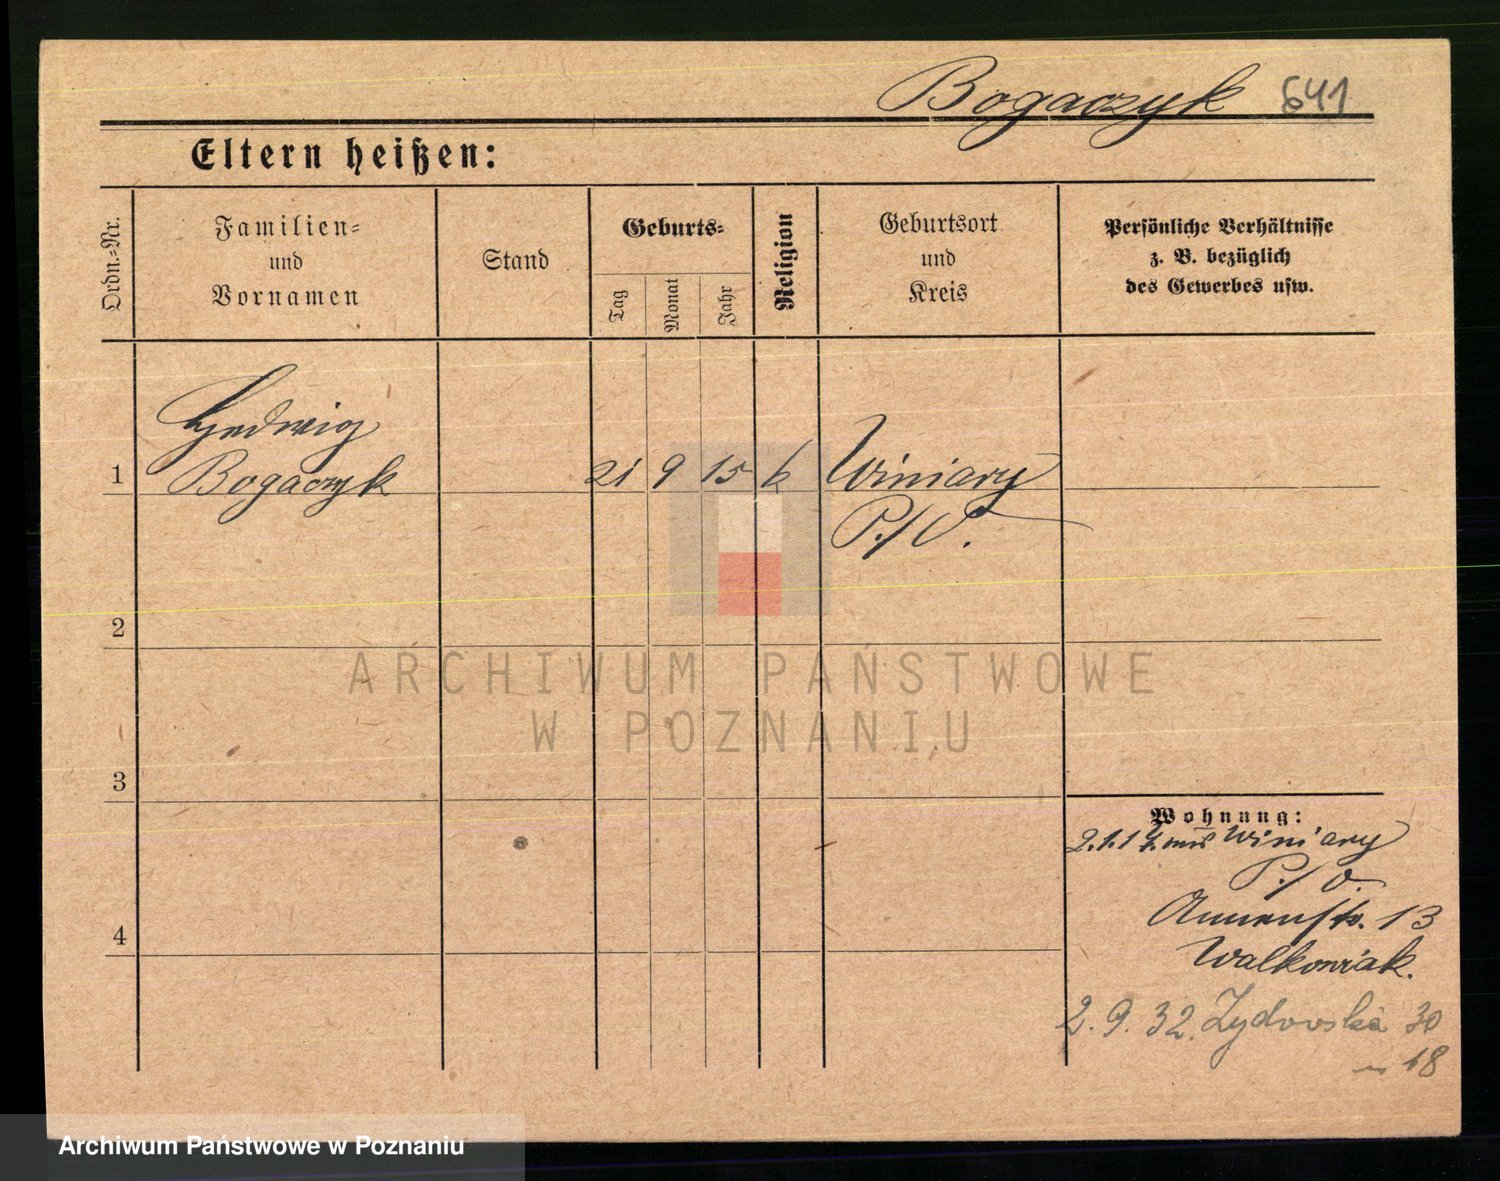 Bogaczyk 641
Eltern heißen:
Ordn.-Nr.
Familien-
und
Vornamen
Stand
Geburts-
Tag
Monat
Jahr
Religion
Geburtsort
und
Kreis
Persönliche Verhältnisse
z. B. bezüglich
des Gewerbes usw.
Hedwig
1 Bogaczyk 21 9 15 k Winiary
P./O.
2
3
4
Wohnung:
2.1.17 aus Winiary
P./O.
Annenstr. 13
Walkowiak.
2. 9. 32. Żydowska 30
18
ARCHIWUM PAŃSTWOWE
W POZNANIU
Archiwum Państwowe w Poznaniu